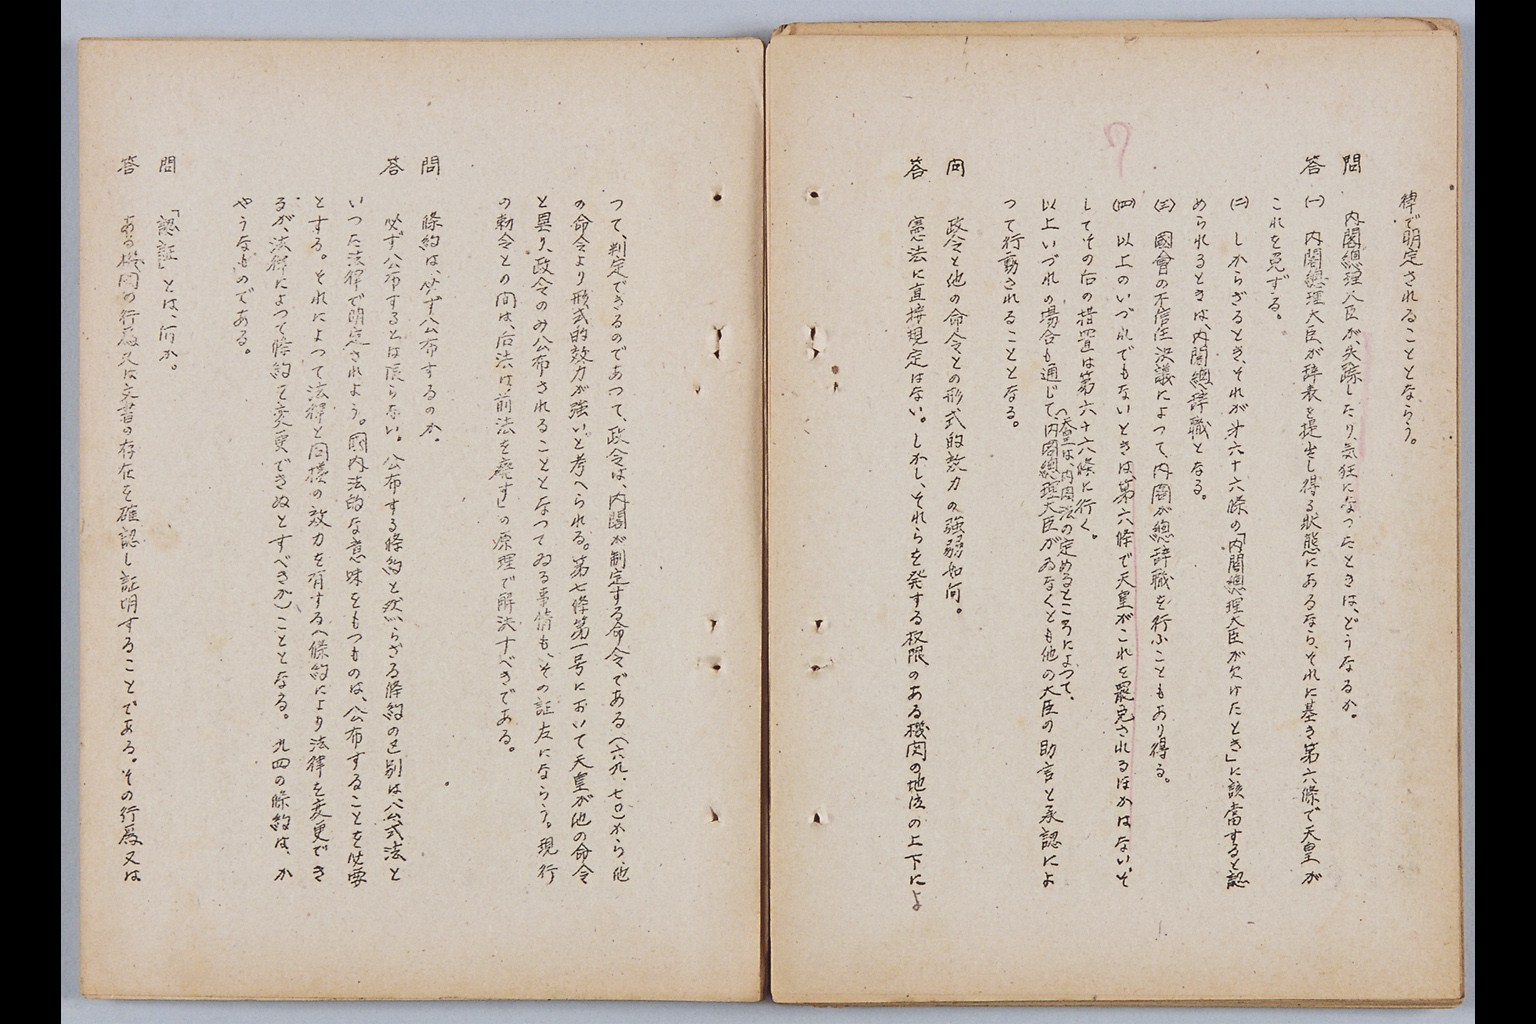 律で明定されることとならう。
問　内閣總理大臣が失踪したり、気狂になつたときは、どうなるか。
答　㈠　内閣總理大臣が辞表を提出し得る状態にあるなら、それに基き第六條で天皇が
これを免ずる。
㈡　しからざるとき、それが才六十六條の「内閣總理大臣が欠けたとき」に該當すると認
められるときは、内閣總辞職となる。
㈢　國會の不信任決議によつて、内閣が總辞職を行ふこともあり得る。
㈣　以上のいづれでもないときは、第六條で天皇がこれを罷免されるほかはない。そ
してその后の措置は第六十六條に行く。
（天皇は、内閣法の定めるところによつて、
以上いづれの場合も通じて、内閣總理大臣がゐなくとも他の大臣の助言と承認によ
つて行動されることとなる。
問　政令と他の命令との形式的効力の強弱如何。
答　憲法に直接規定はない。しかし、それらを発する权限のある機関の地位の上下によ
つて、判定できるのであつて、政令は、内閣が制定する命令である（六九、七〇）から、他
の命令より形式的效力が強いと考へられる。第七條第一号において天皇が他の命令
と異り、政令のみ公布されることとなつてゐる事情も、その証左にならう。現行
の勅令との間は、「后法は前法を廃す」の原理で解決すべきである。
問　條約は、必ず公布するのか。
答　必ず公布するとは限らない。公布する條約と然らざる條約の区別は公式法と
いつた法律で明定されよう。國内法的な意味をもつものは、公布することを必要
とする。それによつて法律と同様の效力を有する（條約により法律を変更でき
るが、法律によつて條約を変更できぬとすべきか）こととなる。九四の條約は、か
やうなものである。
問　「認証」とは、何か。
答　ある機関の行爲又は文書の存在を確認し証明することである。その行爲又は